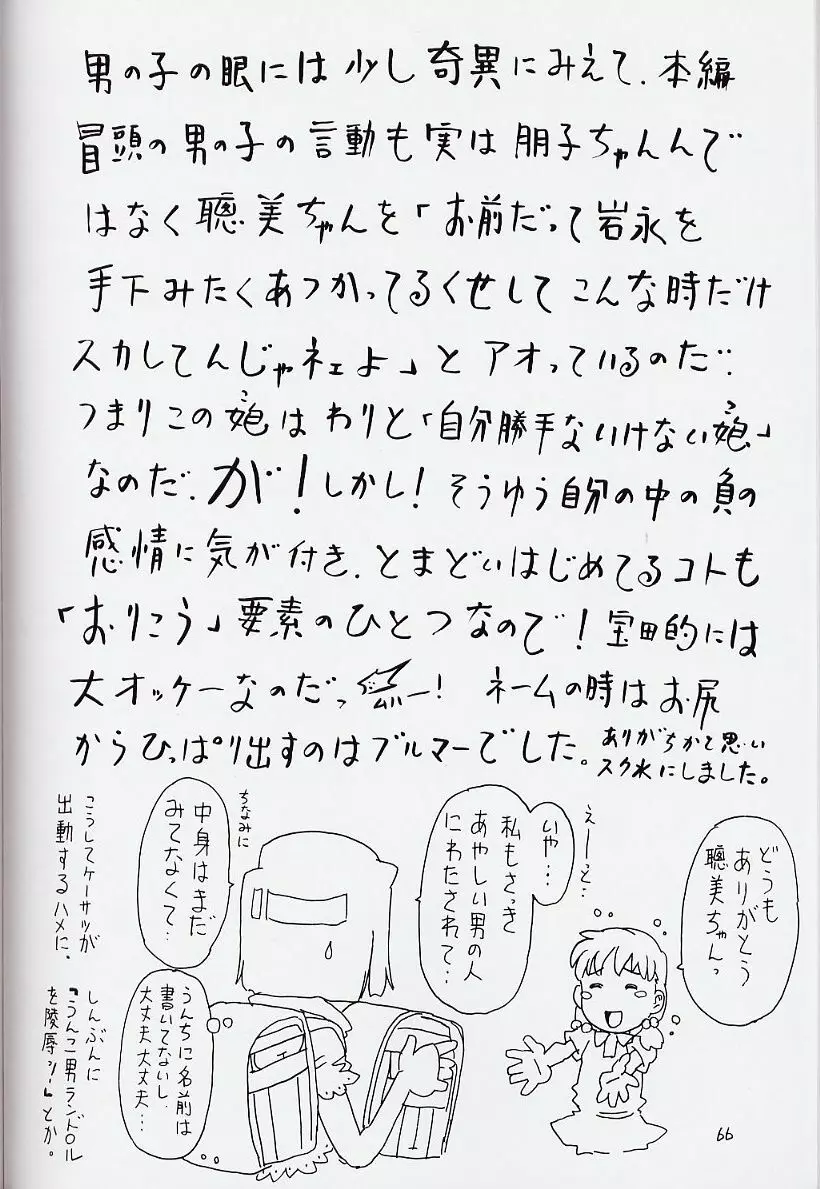 男の子の眼には少し奇異にみえて、本編
冒頭の男の子の言動も実は朋子ちゃんんで
はなく聰美ちゃんを「お前だって岩永を
手下みたくあつかってるくせしてこんな時だけ
スカしてんじゃネェよ」とアオっているのだ。
つまりこの娘はわりと「自分勝手ないけない娘」
コ
コ
なのだ、が!しかし!そうゆう自分の中の負の
感情に気が付き、とまどいはじめてるコトも
「おりこう」要素のひとつなので!宝田的には
大オッケーなのだっ ー!ネームの時はお尻
からひっぱり出すのはブルマーでした。
ありがちかと思い
スク水にしました。
どうも
ありがとう
聰美ちゃんっ
えーっと…
いや…
私もさっき
あやしい男の人
にわたされて…
ちなみに
中身はまだ
みてなくて…
うんちに名前は
書いてないし、
大丈夫大丈夫…
こうしてケーサツが
出動するハメに。
しんぶんに
「うんこ男ランドル
を陵辱ッ!」とか。
66